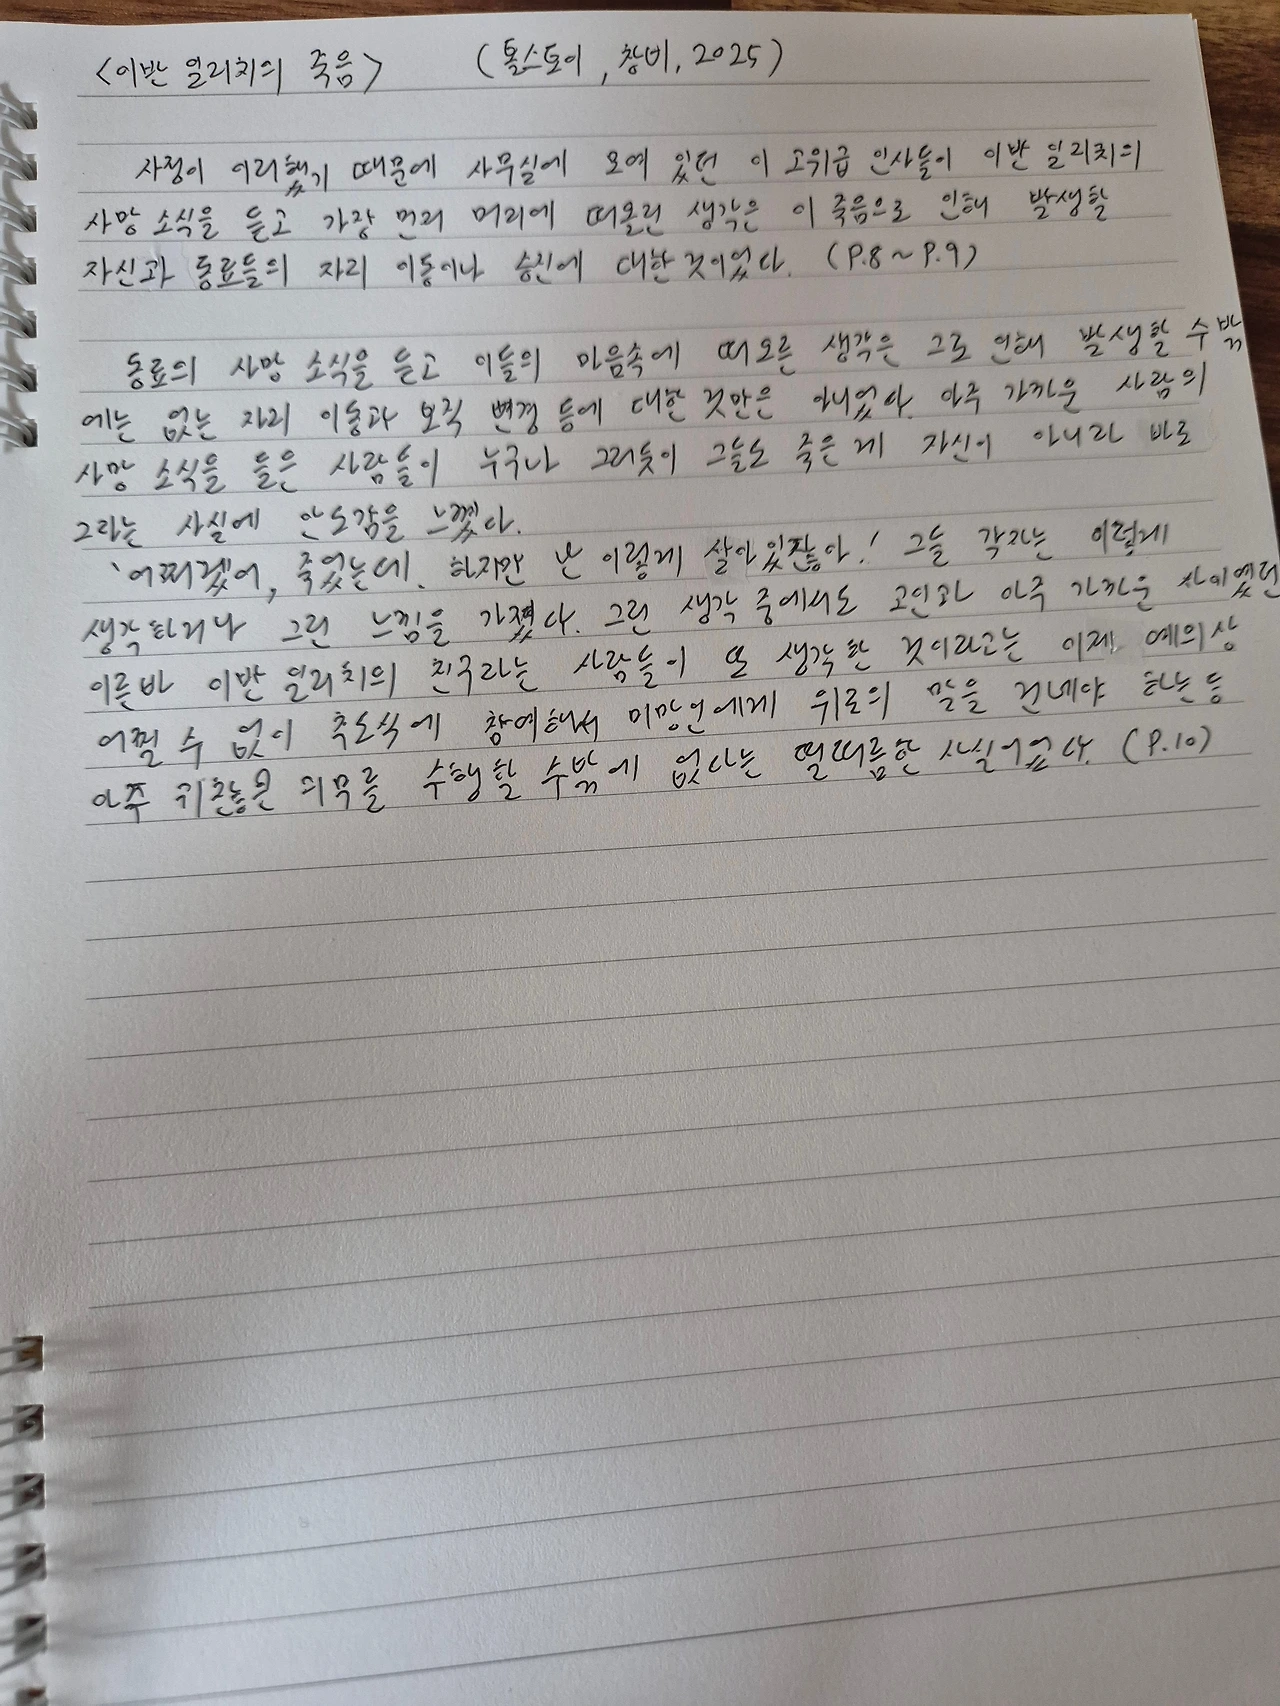 <이반 일리치의 죽음> (톨스토이, 창비, 2025)
사정이 이러했기 때문에 사무실에 모여 있던 이 고위급 인사들이 이반 일리치의
사망 소식을 듣고 가장 먼저 머리에 떠올린 생각은 이 죽음으로 인해 발생할
자신과 동료들의 자리 이동이나 승진에 대한 것이었다. (P.8~P.9)
동료의 사망 소식을 듣고 이들의 마음속에 떠오른 생각은 그로 인해 발생할 수밖
에는 없는 자리 이동과 보직 변경 등에 대한 것만은 아니었다. 아주 가까운 사람의
사망 소식을 들은 사람들이 누구나 그러듯이 그들도 죽은 게 자신이 아니라 바로
그라는 사실에 안도감을 느꼈다.
'어쩌겠어, 죽었는데. 하지만 난 이렇게 살아있잖아! 그들 각자는 이렇게
생각하거나 그런 느낌을 가졌다. 그런 생각 중에서도 고인과 아주 가까운 사이였던
이른바 이반 일리치의 친구라는 사람들이 또 생각한 것이라고는 이제 예의상
어쩔 수 없이 추도식에 참예해서 미망인에게 위로의 말을 건네야 하는 등
아주 귀찮은 의무를 수행할 수밖에 없다는 떨떠름한 사실이었다. (P.10)